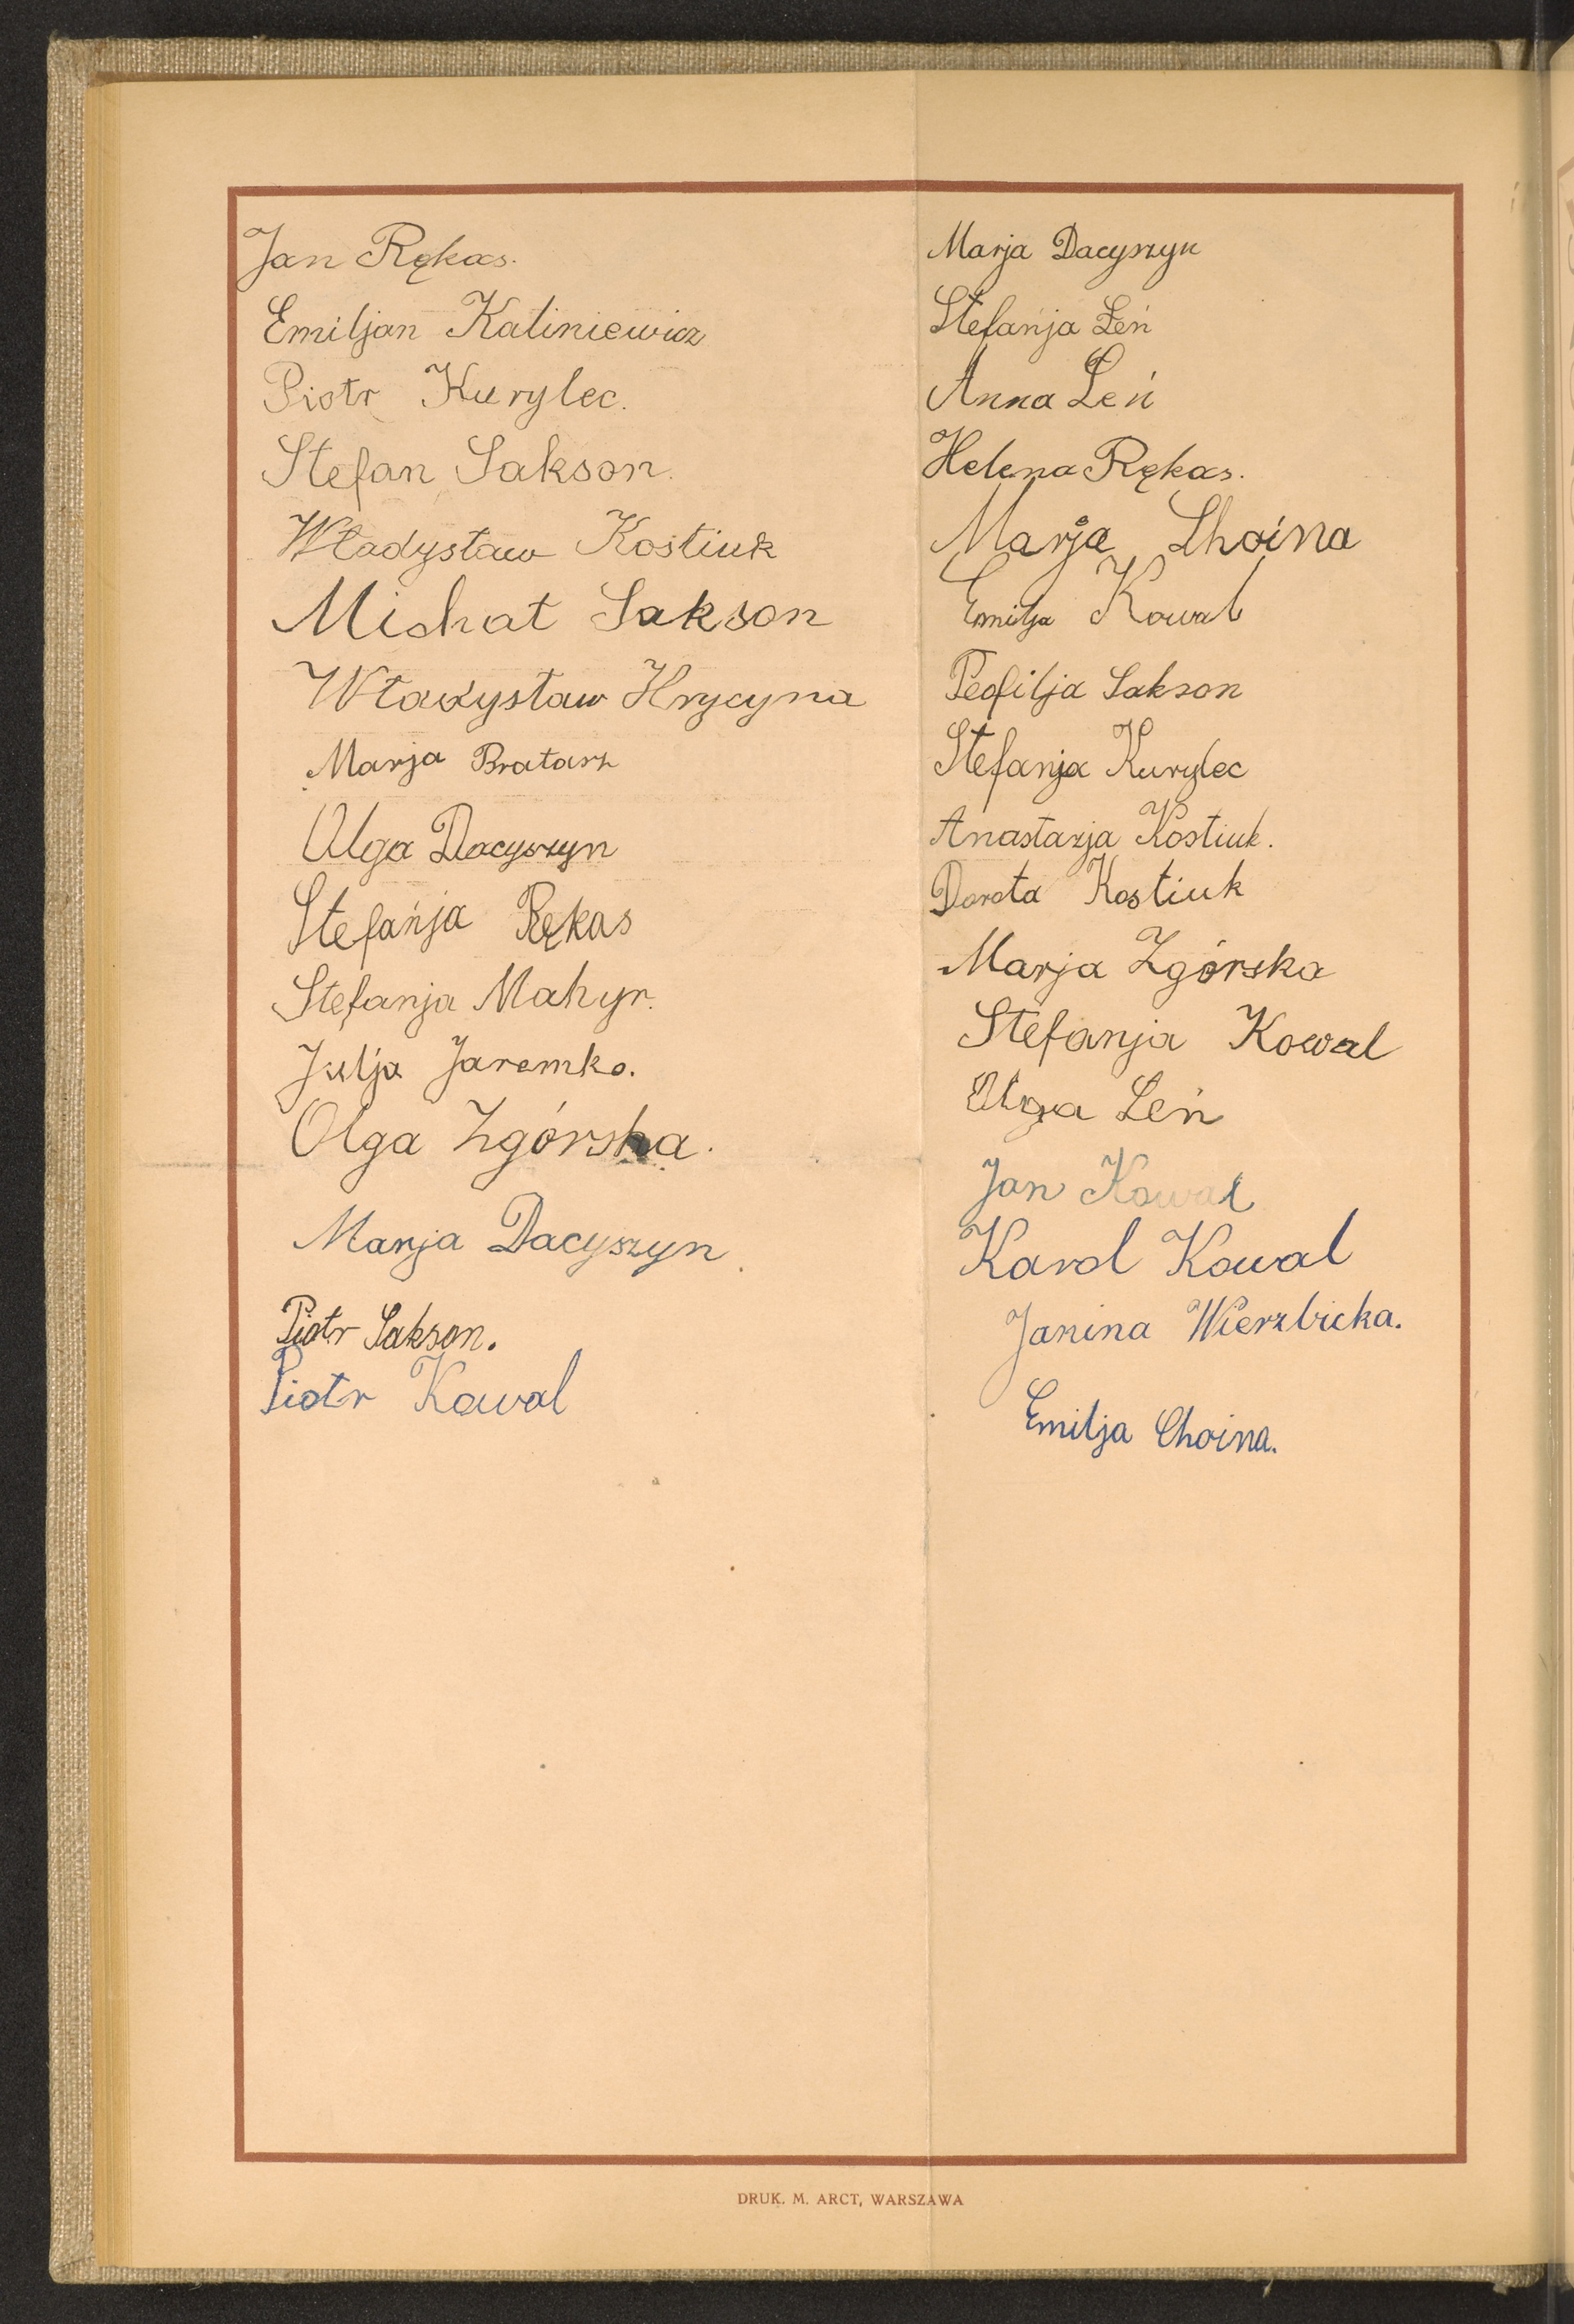 Jan Rękas.
Emiljan Kaliniewicz
Piotr Kurylec.
Stefan Sakson.
Władysław Kostiuk
Michał Sakson
Władysław Hrycyna
Marja Bratarz
Olga Dacyszyn
Stefanja Rękas
Stefanja Mahyr.
Julja Jaremko.
Olga Zgórska.
Marja Dacyszyn
Piotr Sakson.
Piotr Kowal
Marja Dacyszyn
Stefanja Leń
Anna Leń
Helena Rękas.
Marja Choina
Emilja Kowal
Teofilja Sakson
Stefanja Kurylec
Anastazja Kostiuk.
Dorota Kostiuk
Marja Zgórska
Stefanja Kowal
Olga Leń
Jan Kowal
Karol Kowal
Janina Wierzbicka.
Emilja Choina.
DRUK. M. ARCT, WARSZAWA